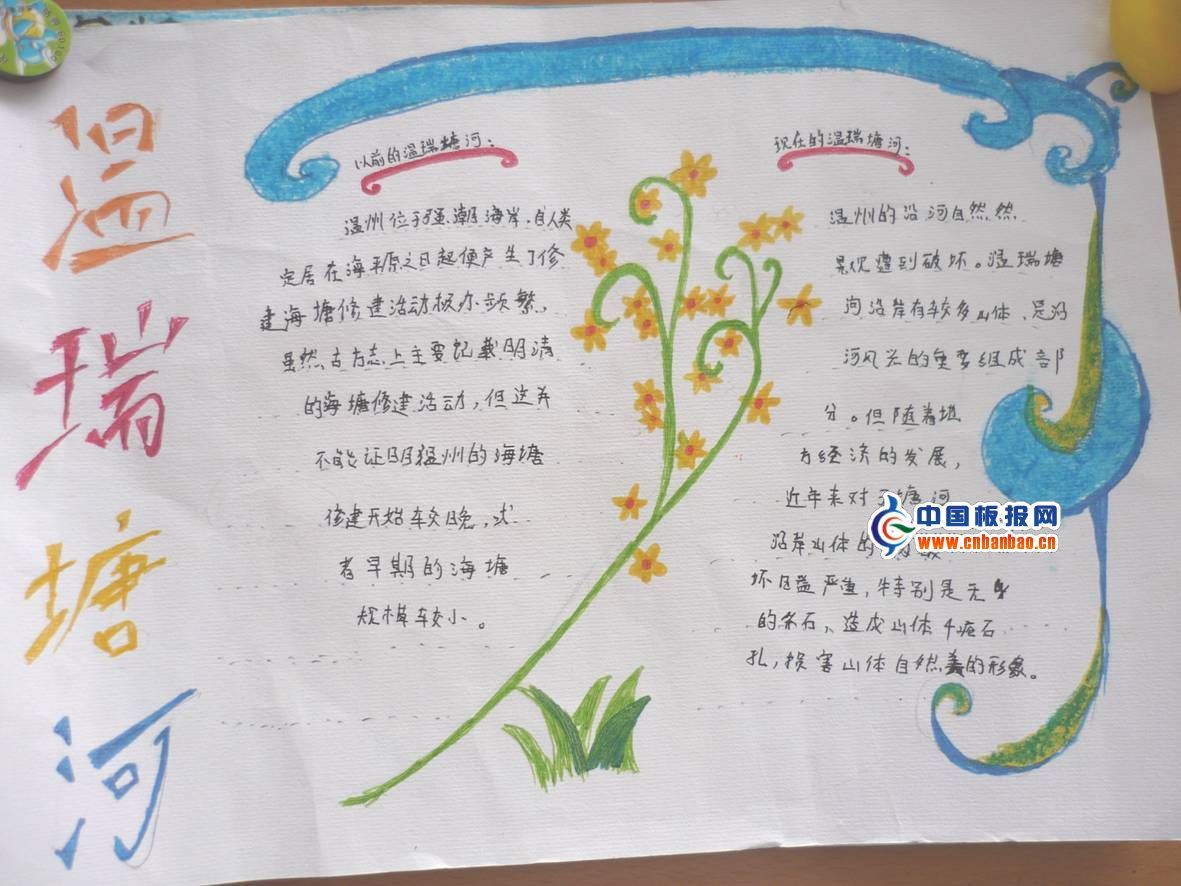 温
瑞
塘
河
以前的温瑞塘河：
温州位于强潮海岸，自人类
定居在海平原之日起便产生了修
建海塘修建活动极亦频繁，
虽然古方志上主要记载明清
的海塘修建活动，但这并
不能证明温州的海塘
修建开始较晚，或
者早期的海塘
规模较小。
现在的温瑞塘河：
温州的沿河自然然
景观遭到破坏。温瑞塘
河沿岸有较多山体，是沿
河风光的重要组成部
分。但随着地
方经济的发展，
近年来对于塘河
沿岸山体的
坏日益严重，特别是无
的采石、造成山体千疮石
孔，损害山体自然美的形象。
中国板报网
www.cnbanbao.cn